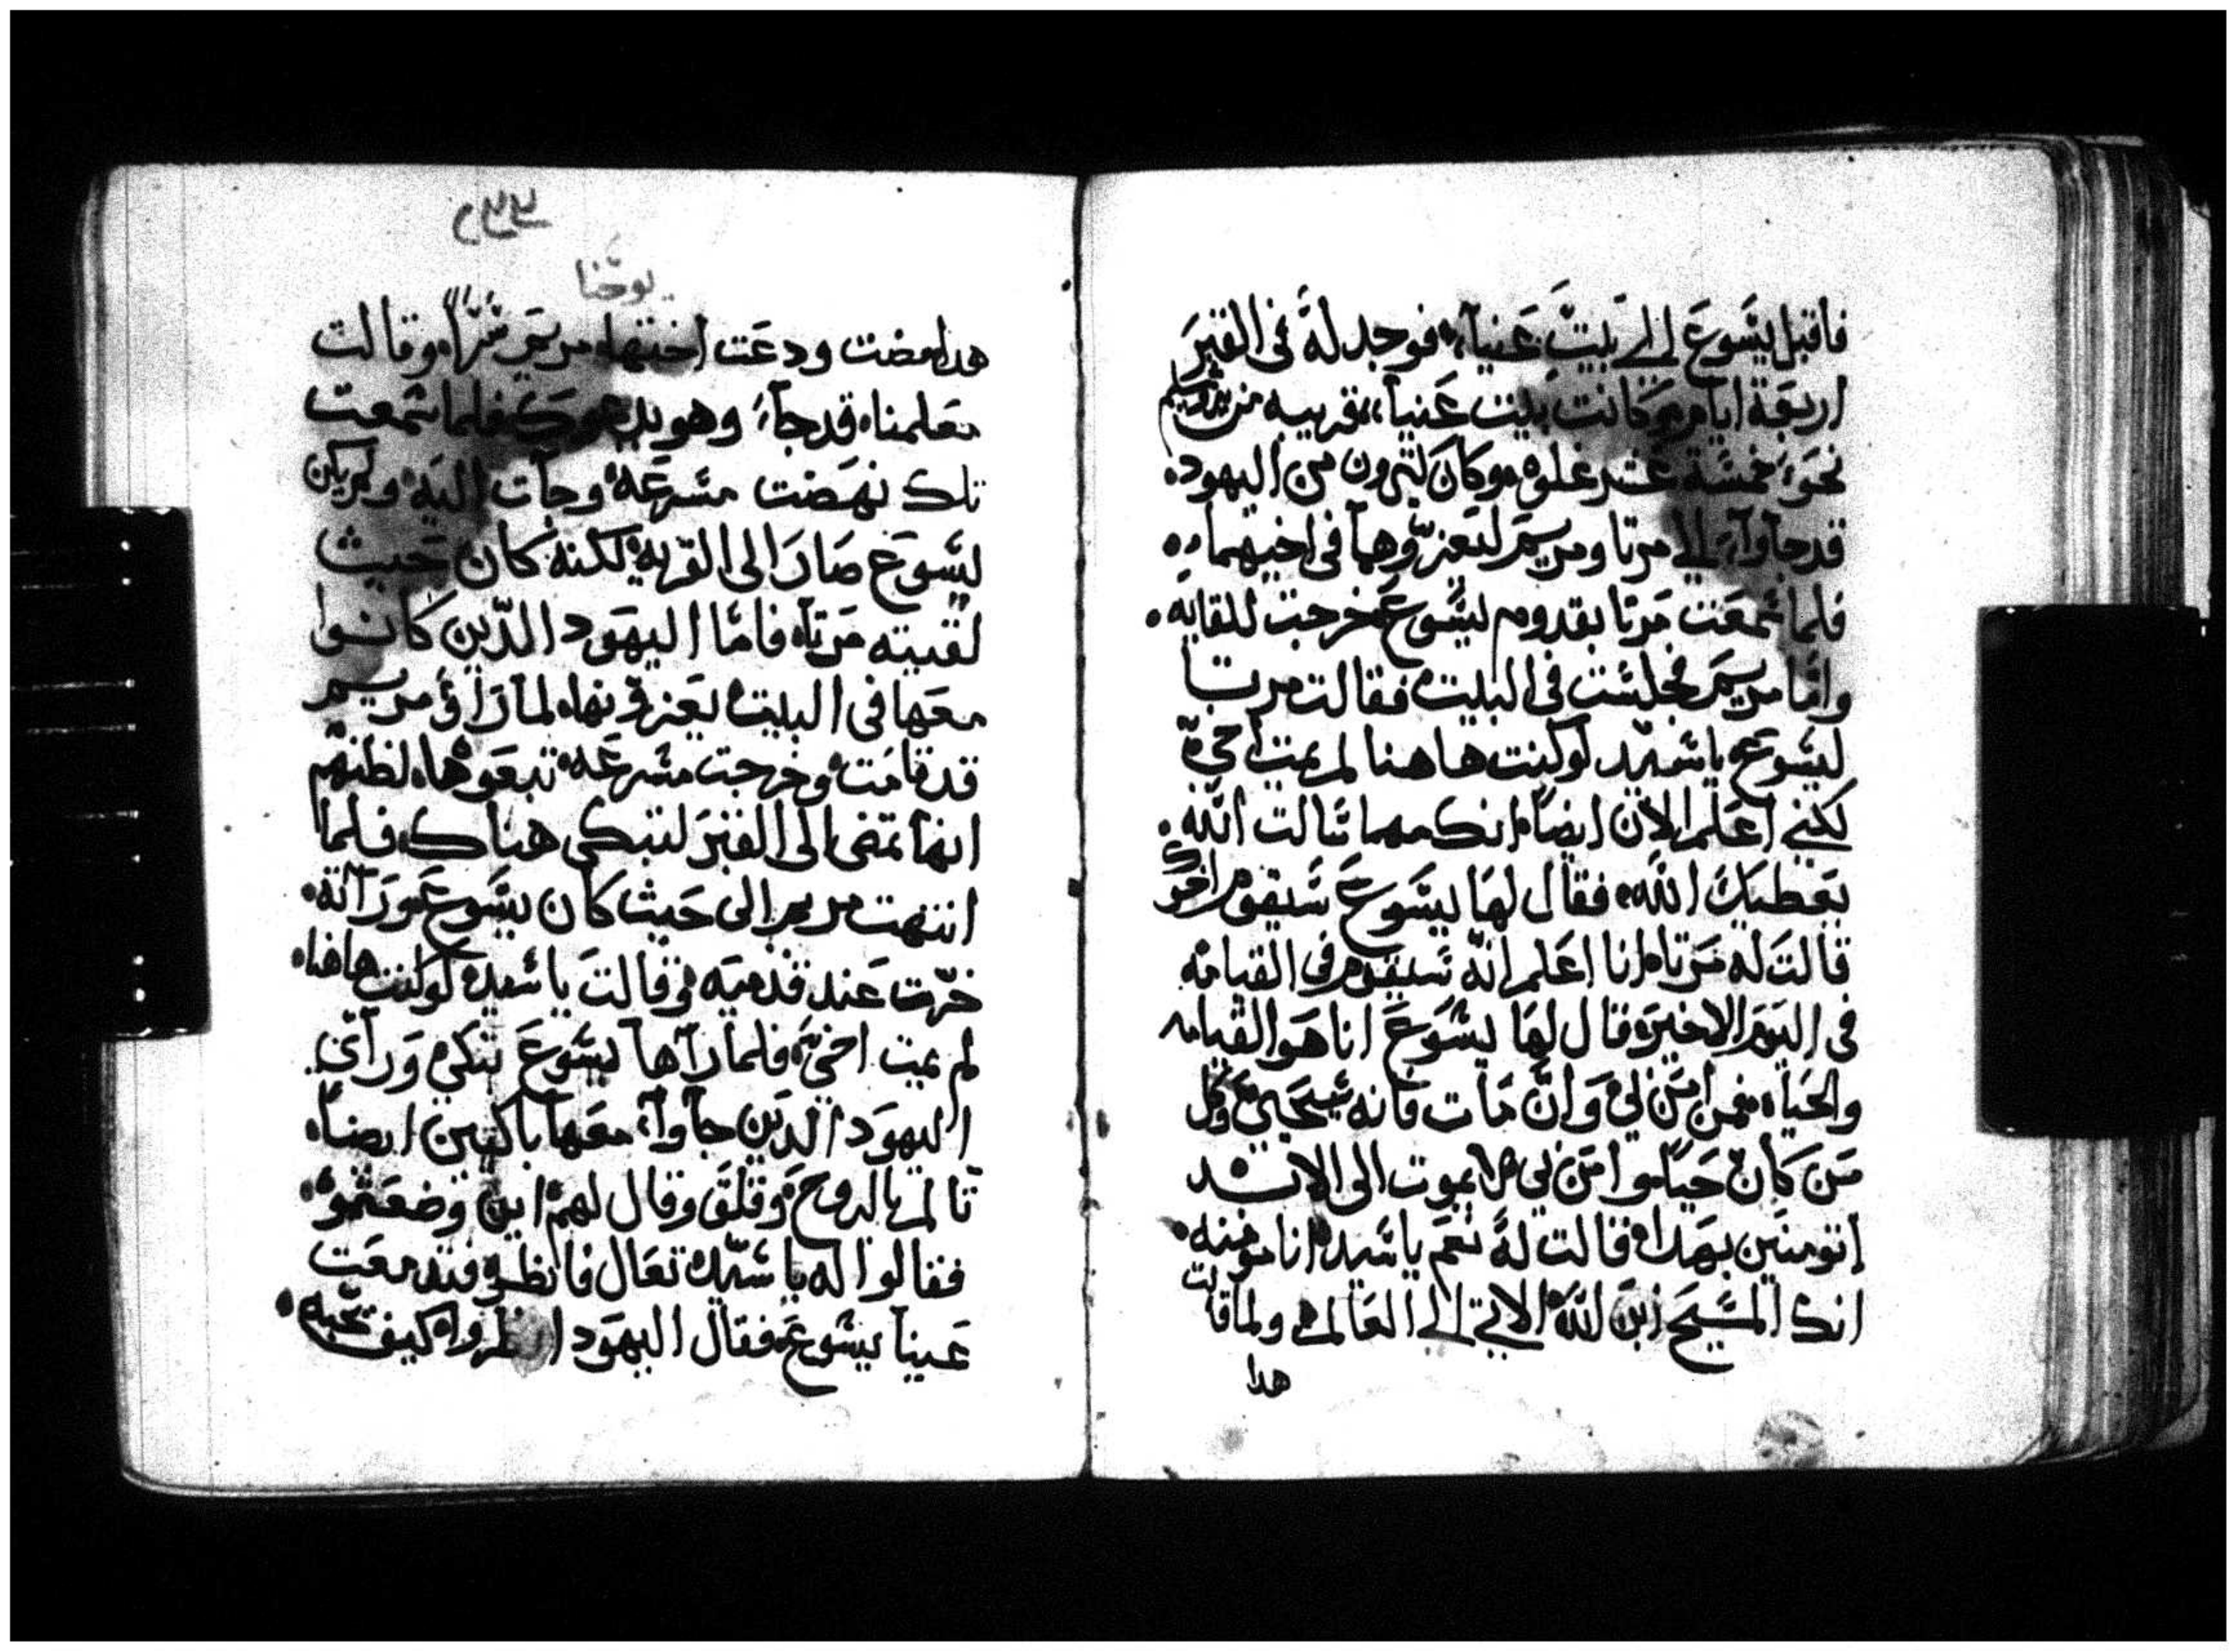 فاقبل يسوع الى بيت عنيا، فوجد له فى القبر
اربعة ايام وكانت بيت عنيا، قريبه من يروشليم
نحو خمسة عشر غلوه وكان كثيرون من اليهود
قد جاوآ، الى مرتا ومريم ليعزوهما فى اخيهما
فلما سمعت مرتا بقدوم يسوع خرجت للقايه
واما مريم فجلست فى البيت فقالت مرتا
ليسوع ياسيد لو كنت هاهنا لم يمت اخى
لكنى اعلم الان ايضاً انك مهما سالت الله
يعطيك الله فقال لها يسوع سيقوم اخوك
قالت له مرتا انا اعلم انه سيقوم فى القيامه
فى اليوم الاخير وقال لها يسوع انا هو القيامه
والحياه فمن امن بى وان مات فانه سيحيى وكل
من كان حياً وامن بى لا يموت الى الابد
اتومنين بهدا قالت له نعم ياسيد انا مومنه
انك المسيح ابن الله الاتى الى العالم ولما قالت
هدا
يوحنا
هدا مضت ودعت اختها مريم سراً وقالت
معلمنا قد جآء وهو يدعوك فلما سمعت
تلك نهضت مسرعه وجآت اليه ولم يكن
يسوع صار الى القريه لكنه كان حيث
لقيته مرتا فاما اليهود الدين كانوا
معها فى البيت يعزونها لما راو مريم
قد قامت وخرجت مسرعه تبعوها لظنهم
انها تمضى الى القبر لتبكى هناك فلما
انتهت مريم الى حيث كان يسوع ورآته
خرت عند قدميه وقالت ياسيد لو كنت هاهنا
لم يمت اخى فلما رآها يسوع تبكى ورآى
اليهود الدين جآوآ، معها باكيين ايضاً
تالم بالروح وقلق وقال لهم اين وضعتموه
فقالوا له ياسيد تعال فانظر فتدمعت
عينا يسوع فقال اليهود انظروا كيف يحبه